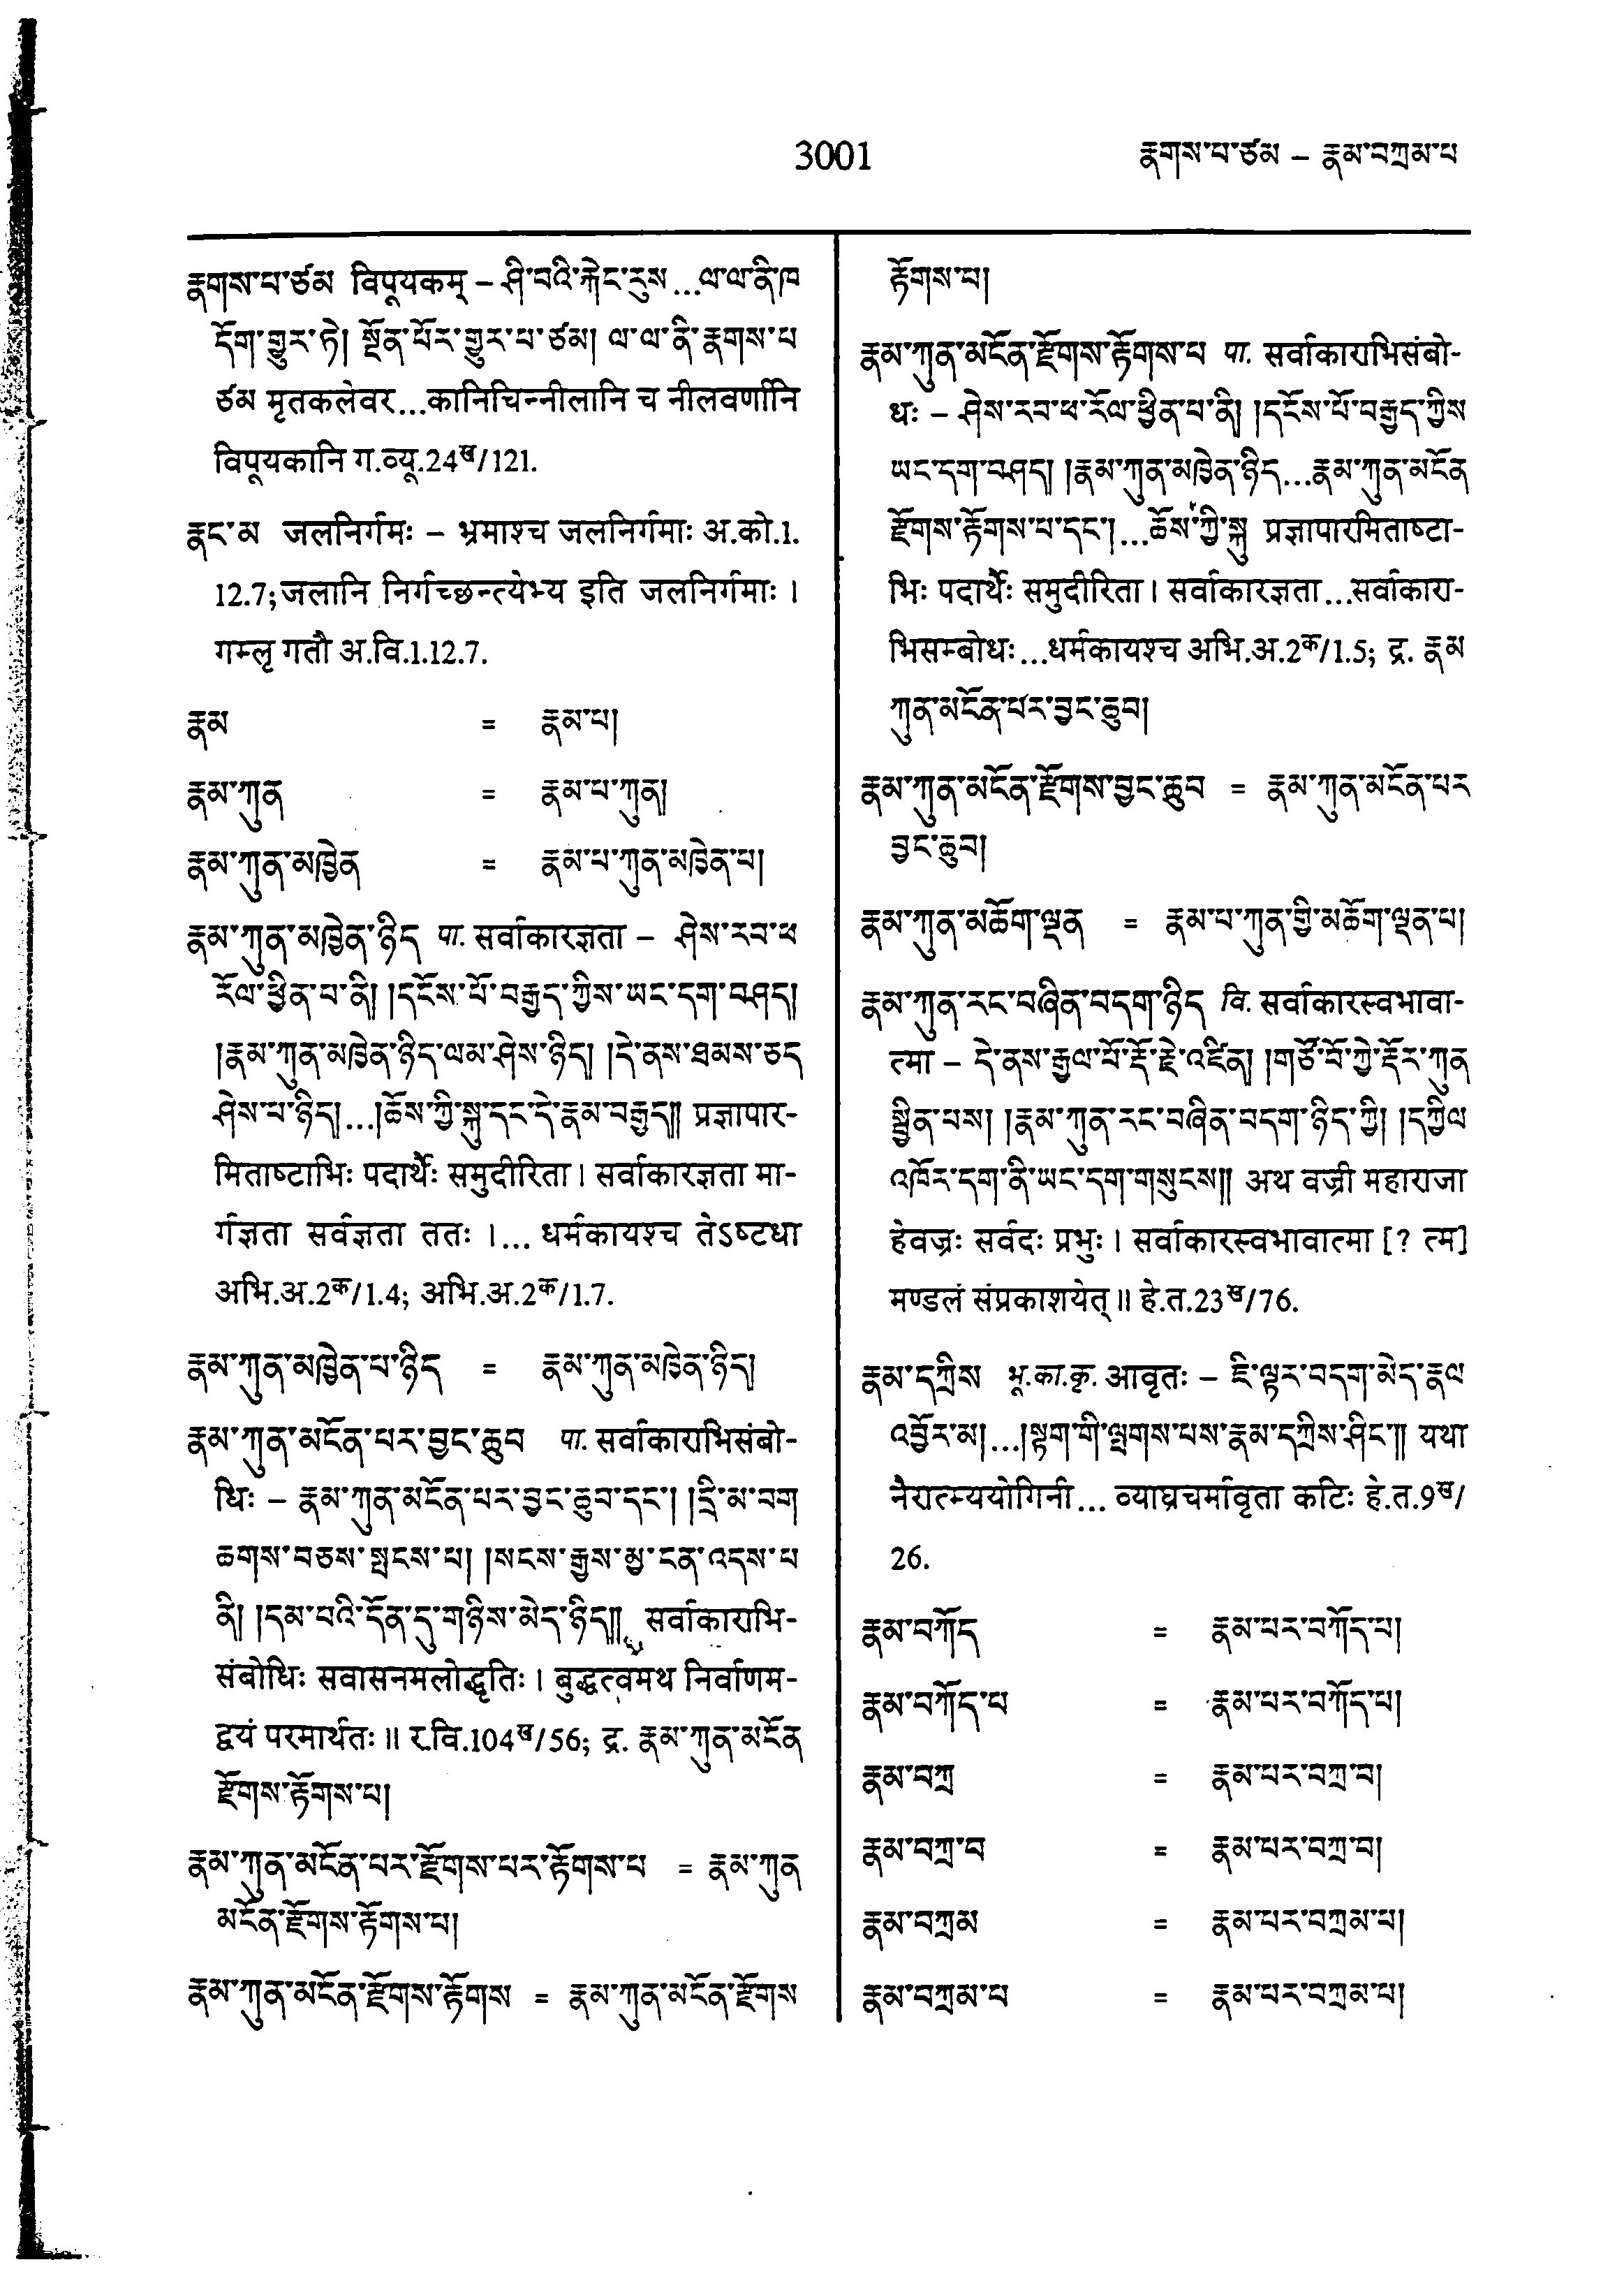 3001
རྣགས་པ་ཙམ – རྣམ་བཀྲམ་པ
རྣགས་པ་ཙམ विपूयकम् – ཤི་བའི་ཀེང་རུས...ལ་ལ་ནི་ཁ
དོག་གྱུར་ཏེ། སྔོན་པོར་གྱུར་པ་ཙམ། ལ་ལ་ནི་རྣགས་པ
ཙམ मृतकलेवर...कानिचिन्नीलानि च नीलवर्णानि
विपूयकानि ग.व्यू.24ख/121.
རྣང་མ जलनिर्गमः – भ्रमाश्च जलनिर्गमाः अ.को.1.
12.7; जलानि निर्गच्छन्त्येभ्य इति जलनिर्गमाः ।
गम्लृ गतौ अ.वि.1.12.7.
རྣམ = རྣམ་པ།
རྣམ་ཀུན = རྣམ་པ་ཀུན།
རྣམ་ཀུན་མཁྱེན = རྣམ་པ་ཀུན་མཁྱེན་པ།
རྣམ་ཀུན་མཁྱེན་ཉིད पा. सर्वाकारज्ञता – ཤེས་རབ་ཕ
རོལ་ཕྱིན་པ་ནི། །དངོས་པོ་བརྒྱད་ཀྱིས་ཡང་དག་བཤད།
།རྣམ་ཀུན་མཁྱེན་ཉིད་ལམ་ཤེས་ཉིད། །དེ་ནས་ཐམས་ཅད
ཤེས་པ་ཉིད།...།ཆོས་ཀྱི་སྐུ་དང་དེ་རྣམ་བརྒྱད།། प्रज्ञापार-
मिताष्टाभिः पदार्थैः समुदीरिता । सर्वाकारज्ञता मा-
र्गज्ञता सर्वज्ञता ततः ।... धर्मकायश्च तेऽष्टधा
अभि.अ.2क/1.4; अभि.अ.2क/1.7.
རྣམ་ཀུན་མཁྱེན་པ་ཉིད = རྣམ་ཀུན་མཁྱེན་ཉིད།
རྣམ་ཀུན་མངོན་པར་བྱང་ཆུབ पा. सर्वाकाराभिसंबो-
धिः – རྣམ་ཀུན་མངོན་པར་བྱང་ཆུབ་དང་། །དྲི་མ་བག
ཆགས་བཅས་སྤངས་པ། །སངས་རྒྱས་མྱ་ངན་འདས་པ
ནི། །དམ་པའི་དོན་དུ་གཉིས་མེད་ཉིད།། सर्वाकाराभि-
संबोधिः सवासनमलोद्धृतिः । बुद्धत्वमथ निर्वाणम-
द्वयं परमार्थतः ॥ र.वि.104ख/56; द्र. རྣམ་ཀུན་མངོན
རྫོགས་རྟོགས་པ།
རྣམ་ཀུན་མངོན་པར་རྫོགས་པར་རྟོགས་པ = རྣམ་ཀུན
མངོན་རྫོགས་རྟོགས་པ།
རྣམ་ཀུན་མངོན་རྫོགས་རྟོགས = རྣམ་ཀུན་མངོན་རྫོགས
རྟོགས་པ།
རྣམ་ཀུན་མངོན་རྫོགས་རྟོགས་པ पा. सर्वाकाराभिसंबो-
धः – ཤེས་རབ་ཕ་རོལ་ཕྱིན་པ་ནི། །དངོས་པོ་བརྒྱད་ཀྱིས
ཡང་དག་བཤད། །རྣམ་ཀུན་མཁྱེན་ཉིད...རྣམ་ཀུན་མངོན
རྫོགས་རྟོགས་པ་དང་།...ཆོས་ཀྱི་སྐུ प्रज्ञापारमिताष्टा-
भिः पदार्थैः समुदीरिता । सर्वाकारज्ञता...सर्वाकारा-
भिसम्बोधः...धर्मकायश्च अभि.अ.2क/1.5; द्र. རྣམ
ཀུན་མངོན་པར་བྱང་ཆུབ།
རྣམ་ཀུན་མངོན་རྫོགས་བྱང་ཆུབ = རྣམ་ཀུན་མངོན་པར
བྱང་ཆུབ།
རྣམ་ཀུན་མཆོག་ལྡན = རྣམ་པ་ཀུན་གྱི་མཆོག་ལྡན་པ།
རྣམ་ཀུན་རང་བཞིན་བདག་ཉིད वि. सर्वाकारस्वभावा-
त्मा – དེ་ནས་རྒྱལ་པོ་རྡོ་རྗེ་འཛིན། །གཙོ་བོ་ཀྱེ་རྡོར་ཀུན
སྦྱིན་པས། །རྣམ་ཀུན་རང་བཞིན་བདག་ཉིད་ཀྱི། །དཀྱིལ
འཁོར་དག་ནི་ཡང་དག་གསུངས།། अथ वज्री महाराजा
हेवज्रः सर्वदः प्रभुः । सर्वाकारस्वभावात्मा [? त्म]
मण्डलं संप्रकाशयेत् ॥ हे.त.23ख/76.
རྣམ་དཀྲིས भू.का.कृ. आवृतः – ཇི་ལྟར་བདག་མེད་རྣལ
འབྱོར་མ།...།སྟག་གི་ལྤགས་པས་རྣམ་དཀྲིས་ཤིང་།། यथा
नैरात्म्ययोगिनी... व्याघ्रचर्मावृता कटिः हे.त.9ख/
26.
རྣམ་བཀོད = རྣམ་པར་བཀོད་པ།
རྣམ་བཀོད་པ = རྣམ་པར་བཀོད་པ།
རྣམ་བཀྲ = རྣམ་པར་བཀྲ་བ།
རྣམ་བཀྲ་བ = རྣམ་པར་བཀྲ་བ།
རྣམ་བཀྲམ = རྣམ་པར་བཀྲམ་པ།
རྣམ་བཀྲམ་པ = རྣམ་པར་བཀྲམ་པ།